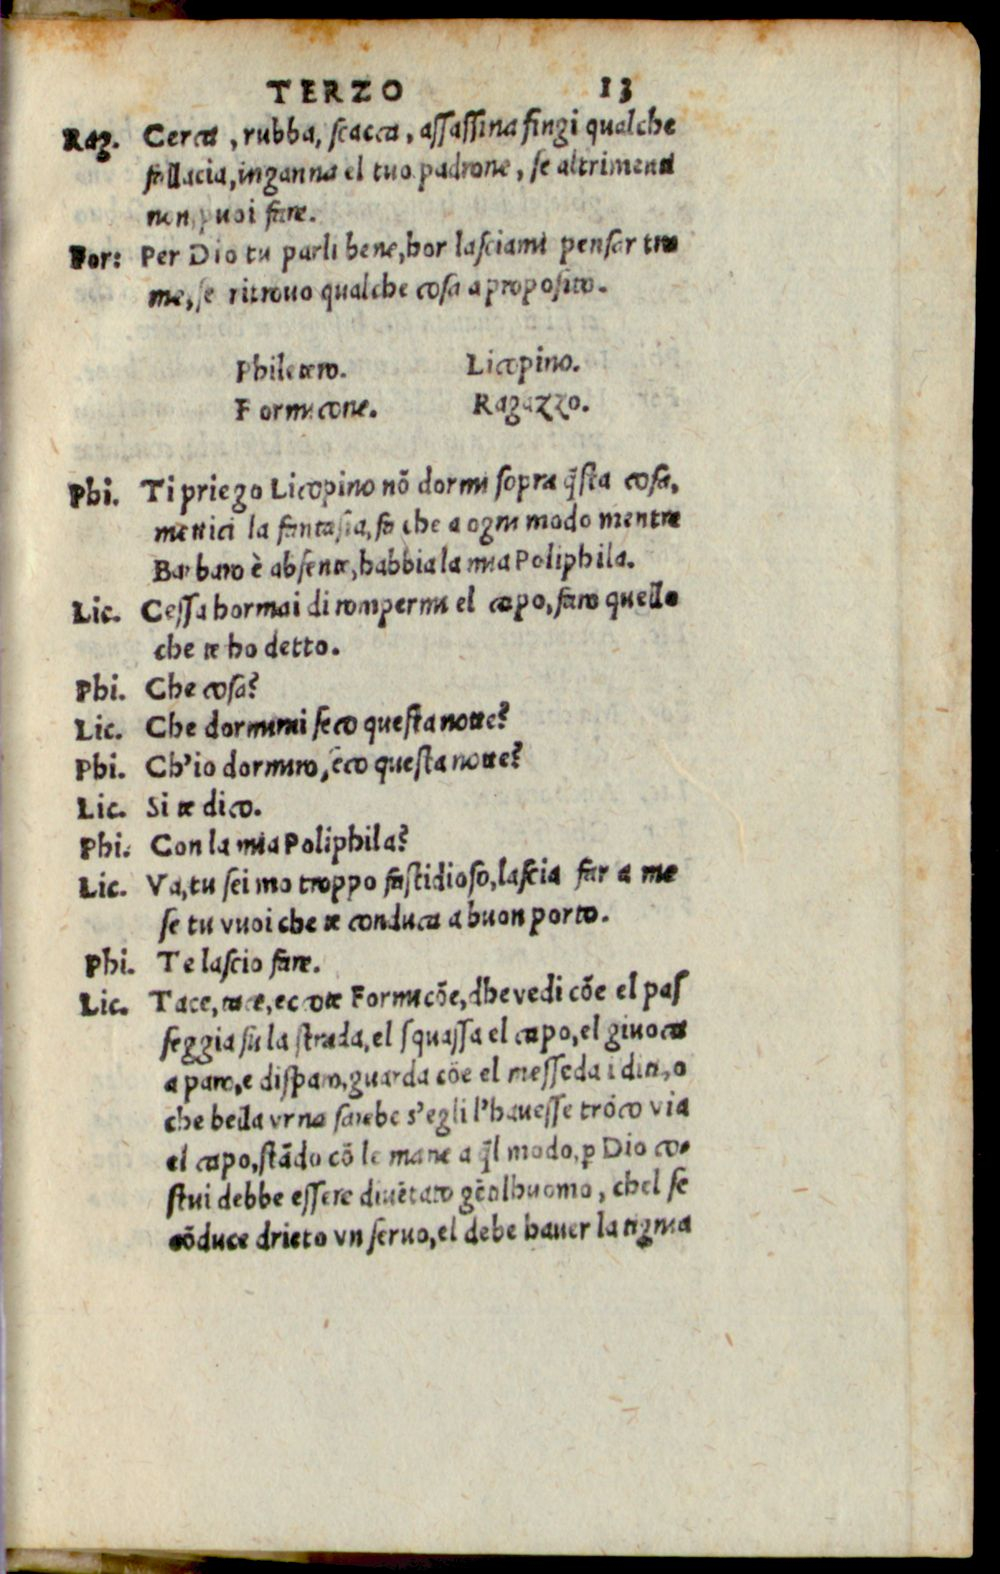 TERZO 13
Rag. Cerca, rubba, ſcacca, aſſaſſina fingi qualche
fallacia, inganna el tuo padrone, ſe altrimenti
non puoi fare.
For: Per Dio tu parli bene, hor laſciami penſar tra
me, ſe ritrouo qualche coſa a propoſito.
Philetero. Licopino.
Formicone. Ragazzo.
Phi. Ti priego Licopino nõ dormi ſopra q̃ſta coſa,
mettici la fantaſia, fa che a ogni modo mentre
Barbaro è abſente, habbia la mia Poliphila.
Lic. Ceſſa hormai di rompermi el capo, faro quello
che te ho detto.
Phi. Che coſa?
Lic. Che dormimi ſeco queſta notte?
Phi. Ch'io dormiro, ſeco queſta notte?
Lic. Si te dico.
Phi. Con la mia Poliphila?
Lic. Va, tu ſei mo troppo faſtidioſo, laſcia far a me
ſe tu vuoi che te conduca a buon porto.
Phi. Te laſcio fare.
Lic. Tace, tace, ecote Formicõe, dhe vedi cõe el paſ
ſeggia ſu la ſtrada, el ſquaſſa el capo, el giuoca
a paro, e diſparo, guarda cõe el meſſeda i diti, o
che bella vrna ſarebe s'egli l'haueſſe trõco via
el capo, ſtãdo cõ le mane a q̃l modo, ꝑ Dio co-
ſtui debbe eſſere diuẽtato gẽtilhuomo, chel ſe
cõduce drieto vn ſeruo, el debe hauer la tigma